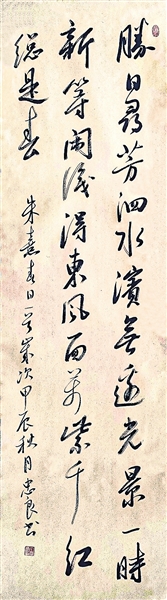 勝日尋芳泗水濱無邊光景一時
新等閑識得東風面萬紫千紅
總是春
朱熹春日一首歲次甲辰秋月忠良書